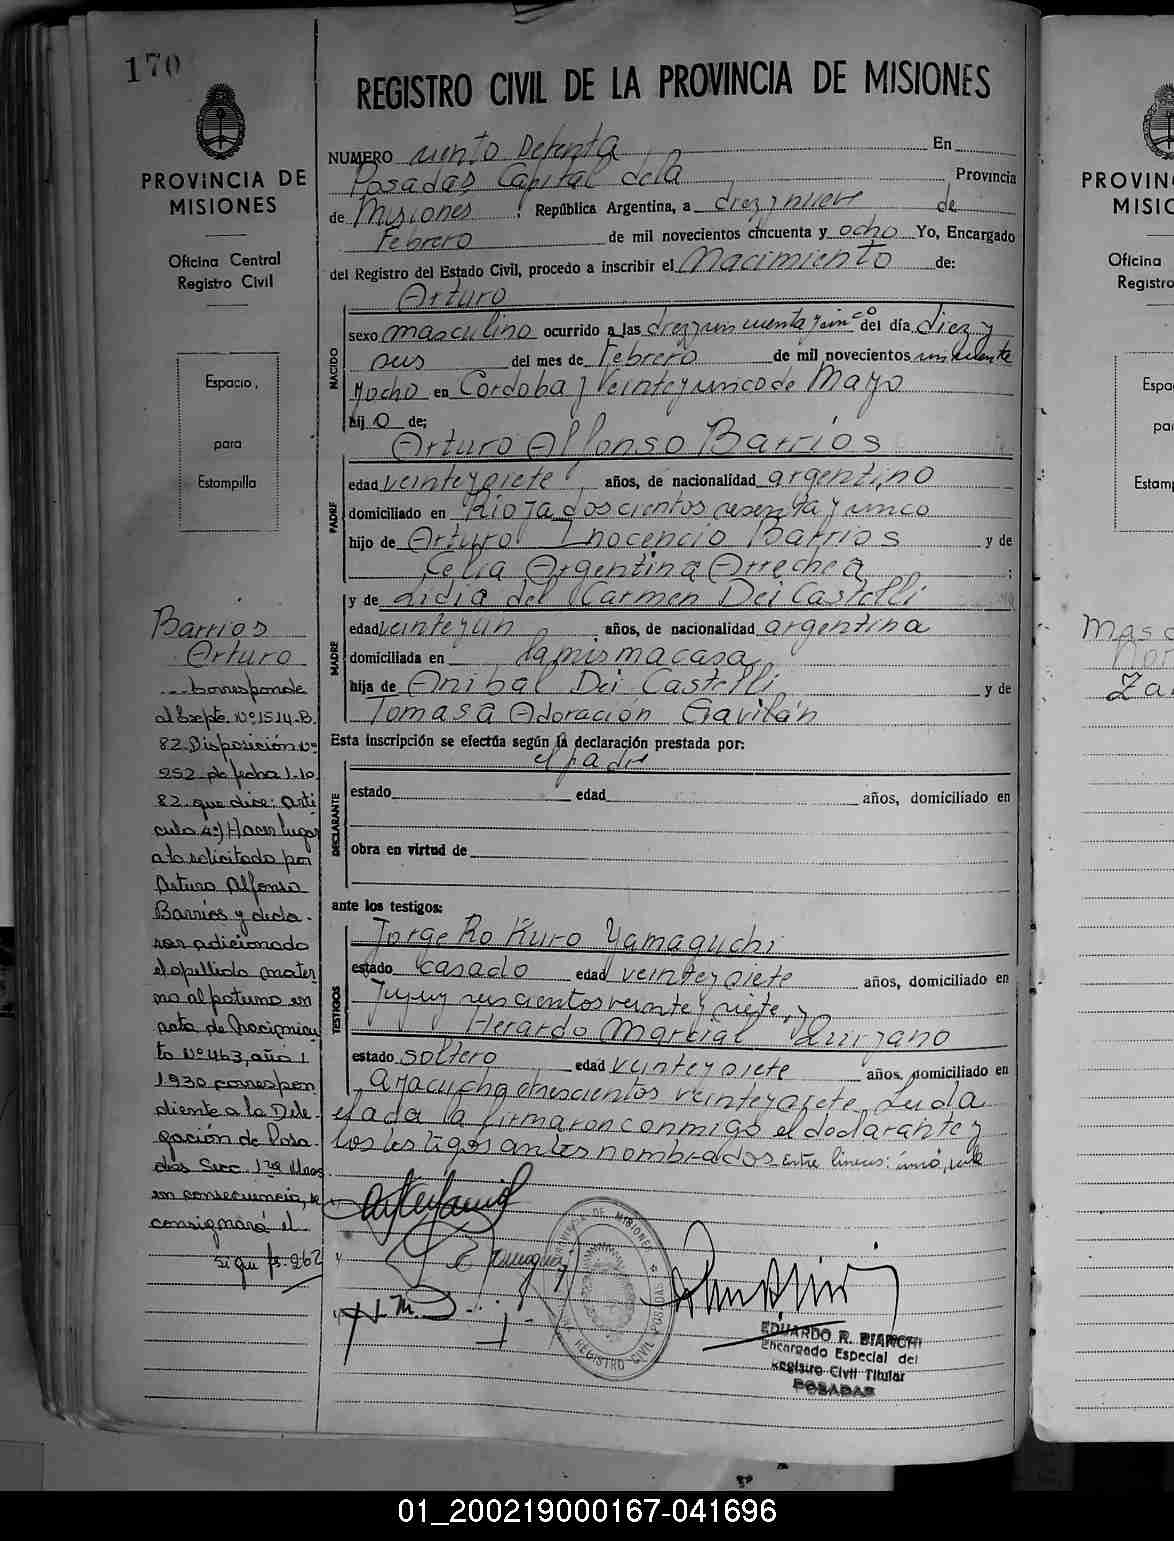 170
PROVINCIA DE
MISIONES
Oficina Central
Registro Civil
Espacio,
para
Estampilla
Barrios
Arturo
... Corresponde
al Expte. Nº 1514-B-
82. Disposición Nº
252 de fecha 1-10-
82 que dice: Artí
culo 4º) Hacer lugar
a lo solicitado por
Arturo Alfonso
Barrios y decla-
rar adicionado
el apellido mater
no al paterno en
acta de Nacimien
to Nº 463, año
1930 correspon
diente a la Dele-
gación de Posa-
das Secc. 1ra
en consecuencia, se
consignará el
sigue fs. 262
REGISTRO CIVIL DE LA PROVINCIA DE MISIONES
NUMERO ciento setenta En
Posadas Capital de la Provincia
de Misiones : República Argentina, a diez y nueve de
Febrero de mil novecientos cincuenta y ocho Yo, Encargado
del Registro del Estado Civil, procedo a inscribir el Nacimiento de:
Arturo
NACIDO
sexo masculino ocurrido a las diez y cincuenta y cinco del día diez y
seis del mes de Febrero de mil novecientos cincuenta
y ocho en Córdoba y Veinte y cinco de Mayo
hij o de;
Arturo Alfonso Barrios
PADRE
edad veinte y siete años, de nacionalidad argentino
domiciliado en Rioja doscientos sesenta y cinco
hijo de Arturo Inocencio Barrios y de
Celia Argentina Arrechea ;
y de Lidia del Carmen Dei Castelli
MADRE
edad veinte y un años, de nacionalidad argentina
domiciliada en la misma casa
hija de Anibal Dei Castelli y de
Tomasa Adoración Gavilán
Esta inscripción se efectúa según la declaración prestada por:
el padre
DECLARANTE
estado edad años, domiciliado en
obra en virtud de
ante los testigos:
TESTIGOS
Jorge Ro Kuro Yamaguchi
estado casado edad veinte y siete años, domiciliado en
Jujuy seiscientos veinte y siete, y
Herardo Marcial Quirzano
estado soltero edad veinte y siete años, domiciliado en
Ayacucho trescientos veinte y siete. Leída
el acta la firmaron conmigo el declarante y
los testigos antes nombrados. Entre líneas: cinco, vale
PROVINCIA DE MISIONES
REGISTRO CIVIL POSADAS
EDUARDO R. BIANCHI
Encargado Especial del
Registro Civil Titular
POSADAS
PROVIN
MISIO
Oficina
Registro
Espa
par
Estam
01_200219000167-041696